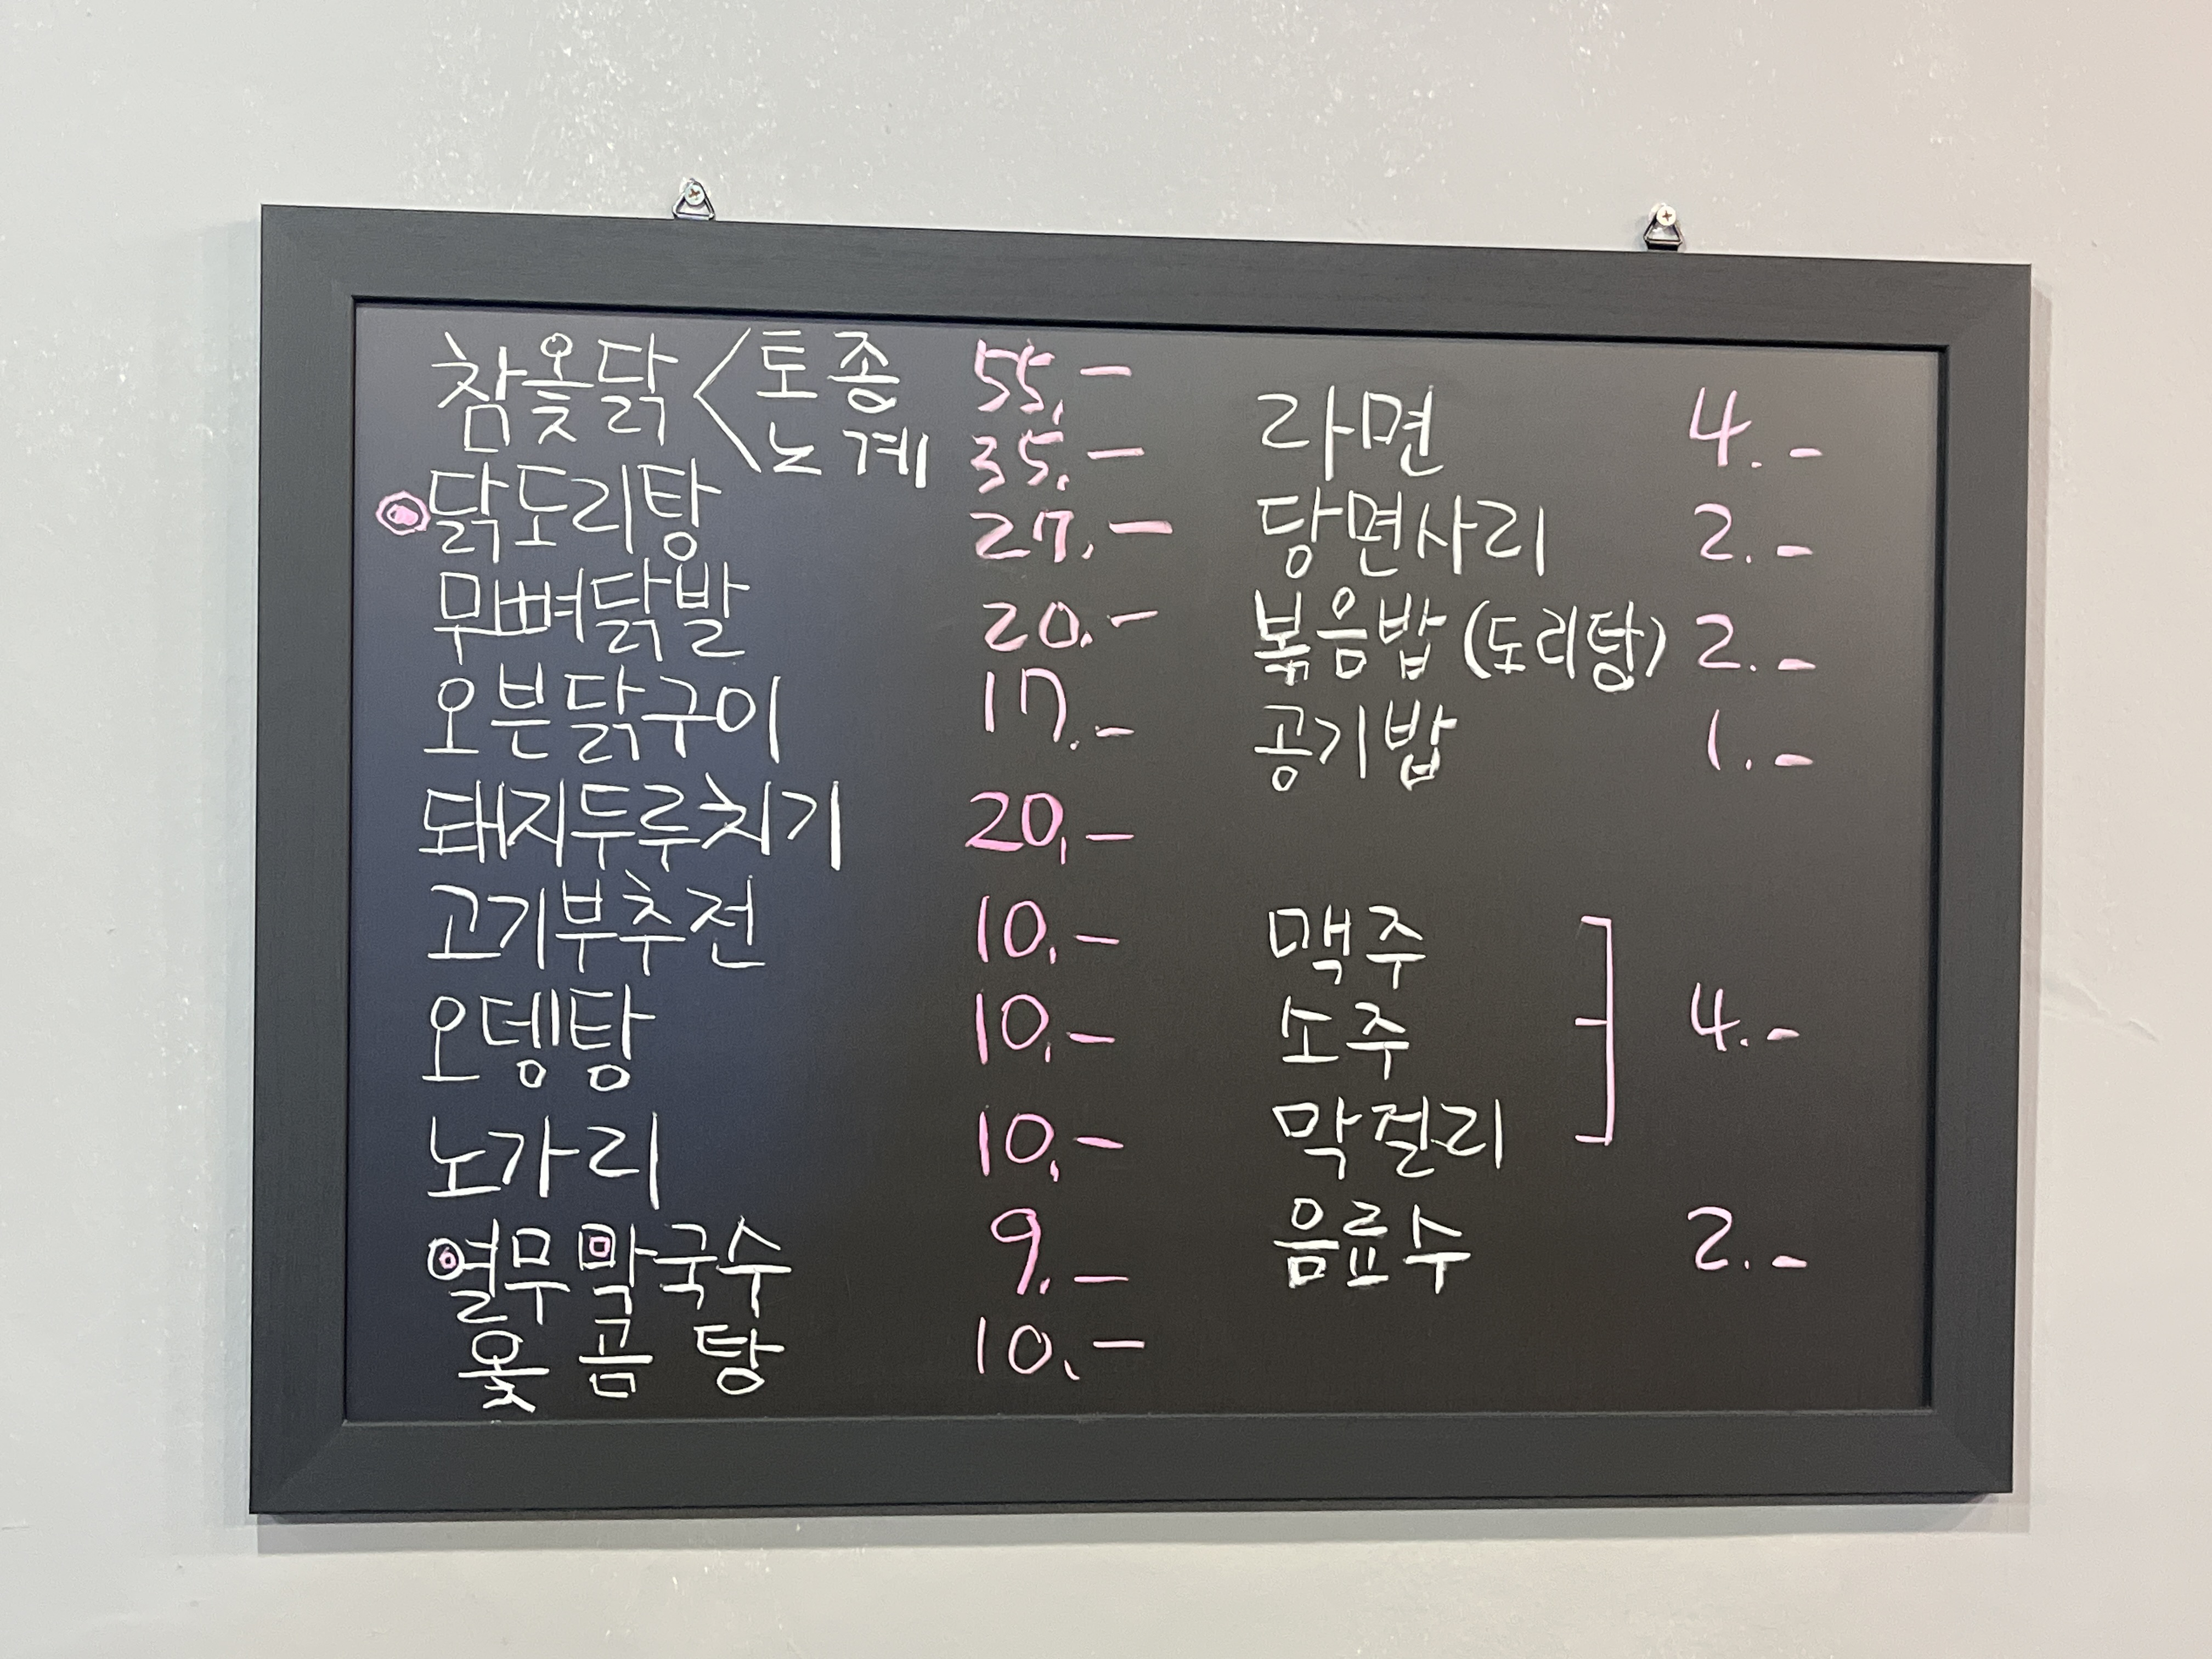 참옻닭 < 토종 55,-
노계 35,-
닭도리탕 27,-
무뼈닭발 20,-
오븐닭구이 17.-
돼지두루치기 20,-
고기부추전 10,-
오뎅탕 10,-
노가리 10,-
열무막국수 9,-
옻곰탕 10,-
라면 4.-
당면사리 2.-
볶음밥(도리탕) 2.-
공기밥 1.-
맥주
소주 4.-
막걸리
음료수 2.-